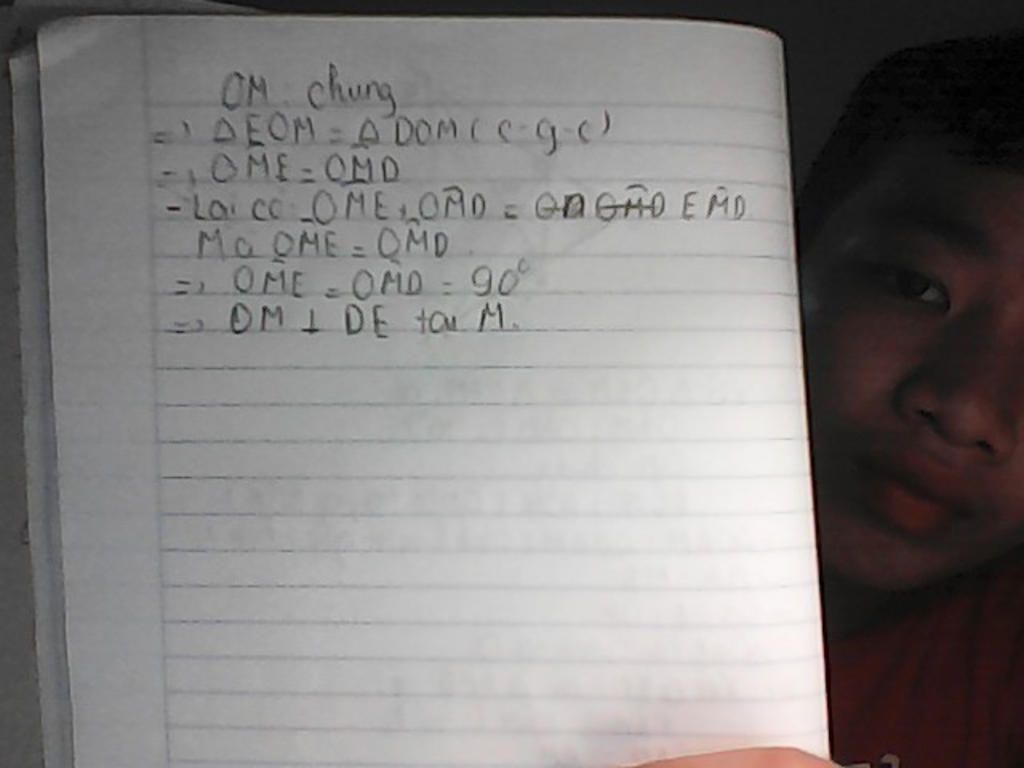 OM chung
=> ΔEOM = ΔDOM (c-g-c)
=> OME = OMD
- Lại có OME + OMD = EMD
Mà OME = OMD
=> OME = OMD = 90°
=> OM ⊥ DE tại M.